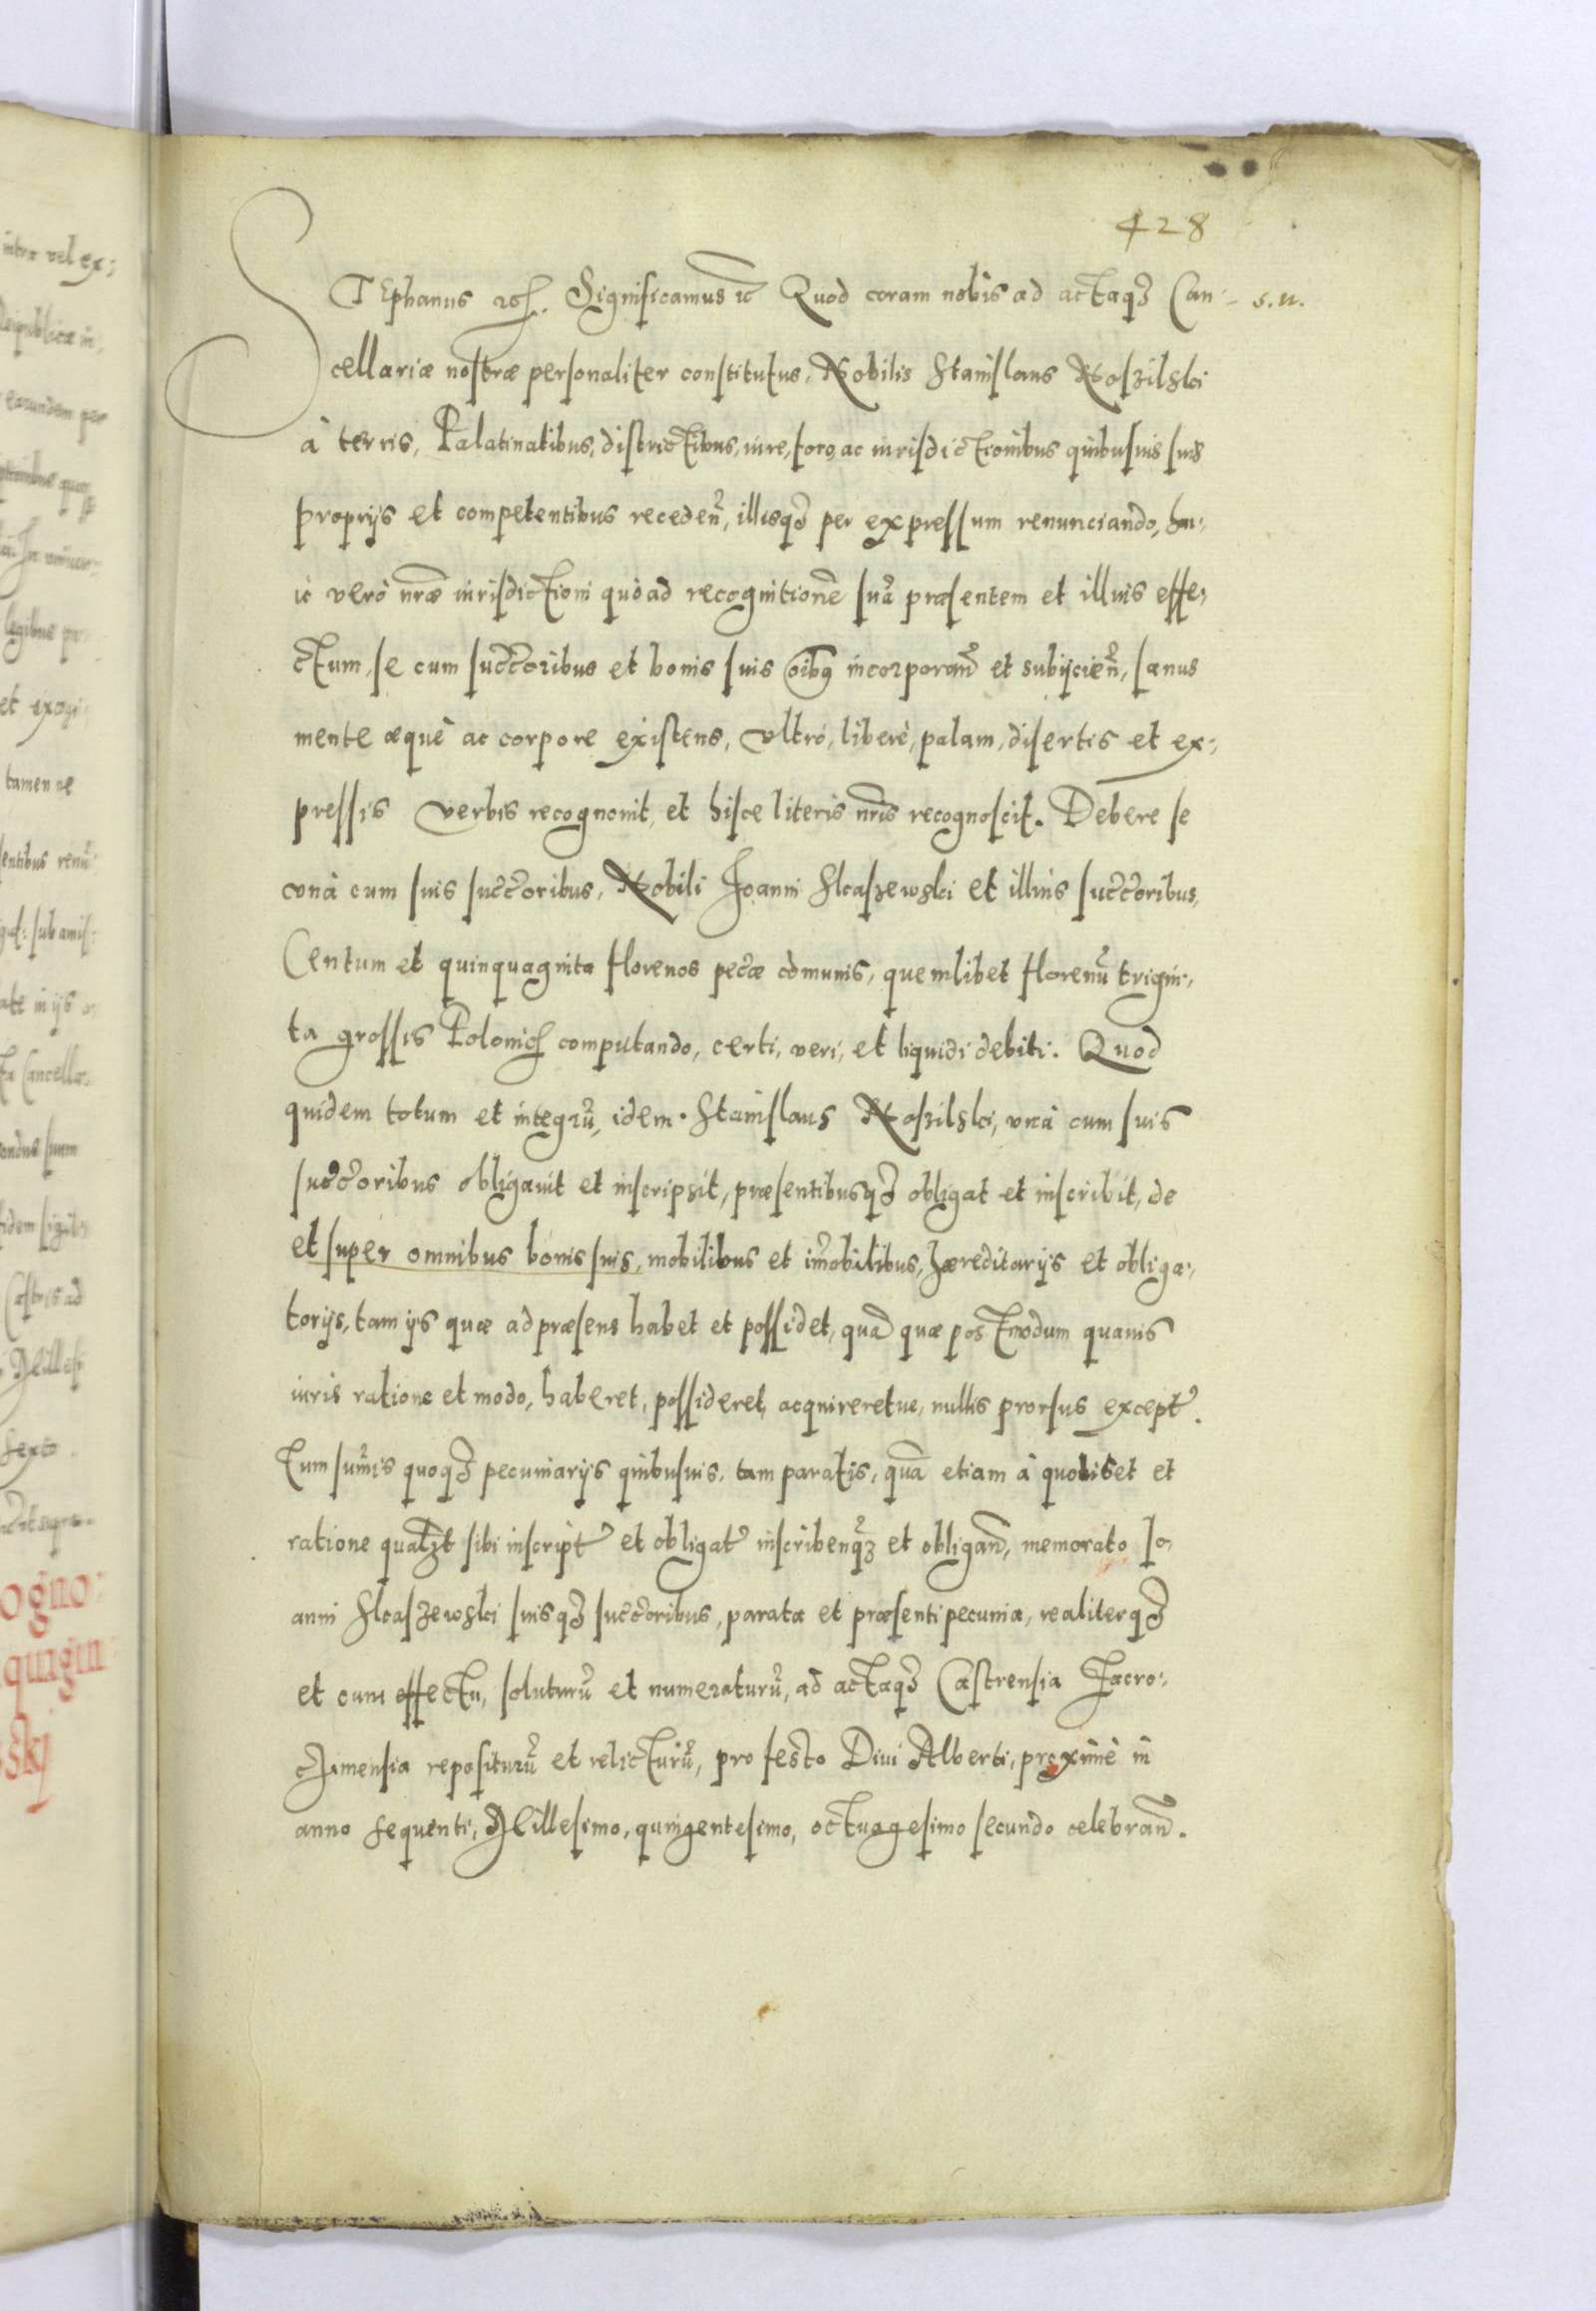 428
STEphanus rex. Significamus etc Quod coram nobis ad actaqȝ Can- s. n.
cellariæ nostræ personaliter constitutus, Nobilis Stanislaus Noszilski
à terris, Palatinatibus, districtibus, iure, foro, ac iurisdictionibus quibusuis suis
proprijs et competentibus receden̄, illisqȝ per expressum renunciando, hu-
ic verò nr̄æ iurisdictioni quò ad recognitionē suā præsentem et illius effe-
ctum, se cum succ̄oribus et bonis suis oībꝯ incorporan̄ et subijcien̄, sanus
mente æquè ac corpore existens, vltrò, liberè, palam, disertis et ex-
pressis verbis recognouit, et hisce literis nr̄is recognoscit. Debere se
vnà cum suis succ̄oribus, Nobili Joanni Skaszewski et illius succ̄oribus,
Centum et quinquaginta florenos pec̄æ cōmunis, quemlibet florenū trigin-
ta grossis Polonicꝭ computando, certi, veri, et liquidi debiti. Quod
quidem totum et integrū, idem. Stanislaus Noszilski, vnà cum suis
succ̄oribus obligauit et inscripsit, præsentibusqȝ obligat et inscribit, de
et super omnibus bonis suis, mobilibus et im̄obilibus, hæreditarijs et obliga-
torijs, tam ijs quæ ad præsens habet et possidet, quā quæ postmodum quauis
iuris ratione et modo, haberet, possideret, acquireretue, nullis prorsus except̄.
Tum sum̄is quoqȝ pecuniarijs quibusuis, tam paratis, quā etiam à quolibet et
ratione qualȝt sibi inscript̄ et obligat̄ inscribenqȝ et obligan̄, memorato Jo-
anni Skaszewski suisqȝ succ̄oribus, parata et præsenti pecunia, realiterqȝ
et cum effectu, soluturū et numeraturū, ad actaqȝ Castrensia
repositurū et relicturū, pro festo Diui Alberti, proximè in
anno sequenti, Millesimo, quingentesimo, octuagesimo secundo celebran̄.